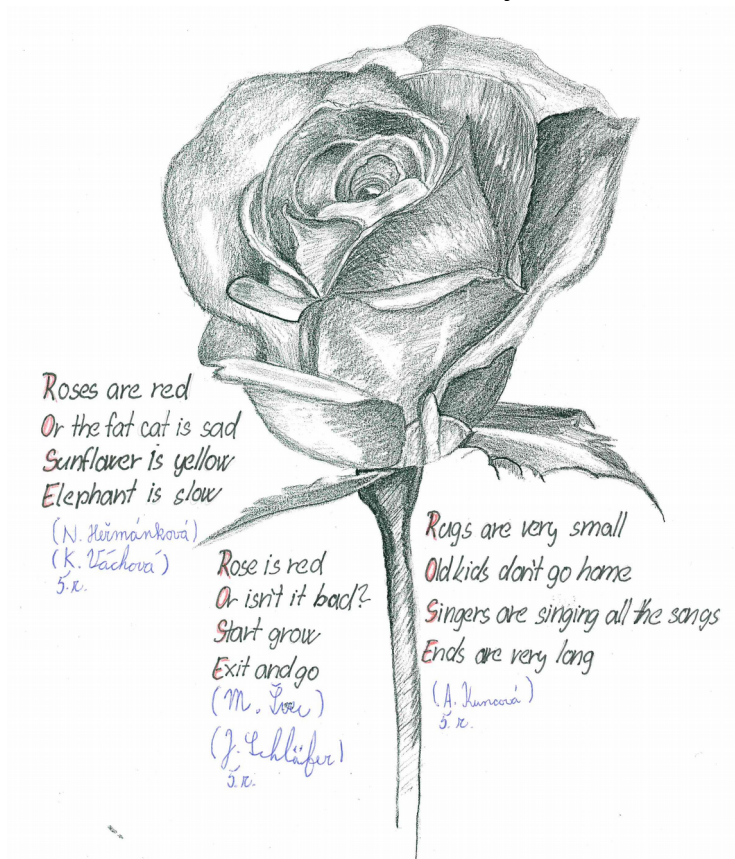 Roses are red
Or the fat cat is sad
Sunflower is yellow
Elephant is slow
(N. Heřmánková)
(K. Váchová)
5.r.
Rose is red
Or isn't it bad?
Start grow
Exit and go
(M. Švec)
(J. Schläfer)
5.r.
Rugs are very small
Old kids don't go home
Singers are singing all the songs
Ends are very long
(A. Kuncová)
5.r.